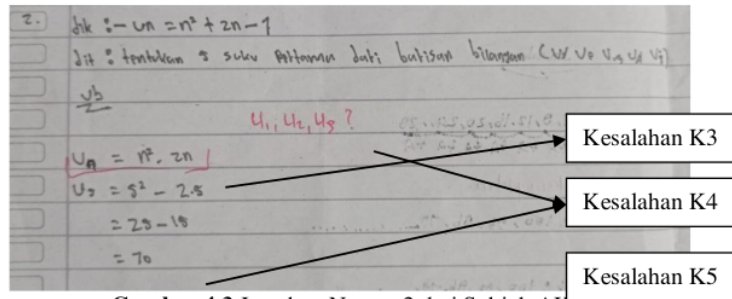 2. dik :- Un = n² + 2n - 1
dit : tentukan 5 suku pertama dari barisan bilangan (U1 U2 U3 U4 U5)
U1, U2, U3 ?
Un = n². 2n
U5 = 5² - 2.5
= 25 - 15
= 70
Kesalahan K3
Kesalahan K4
Kesalahan K5